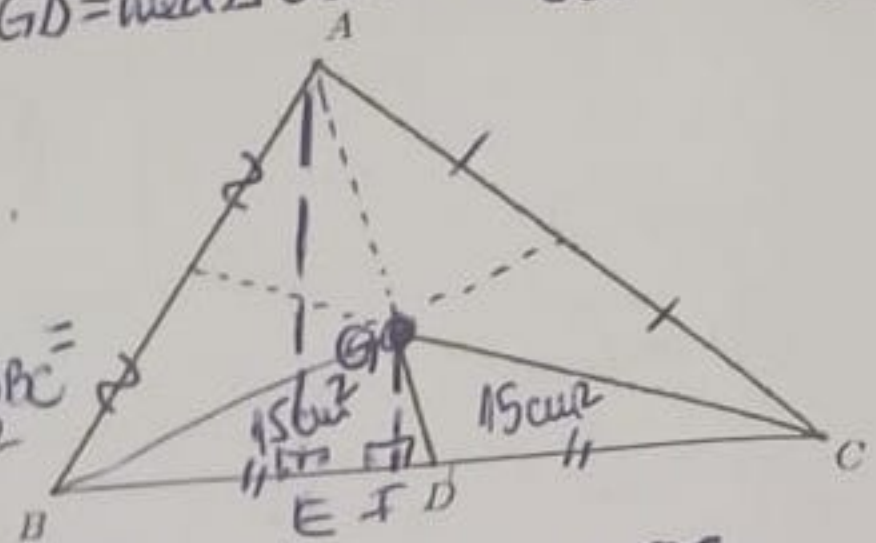 GD=
A
BC =
2
G
15cm²
15cm²
B
E F D
C